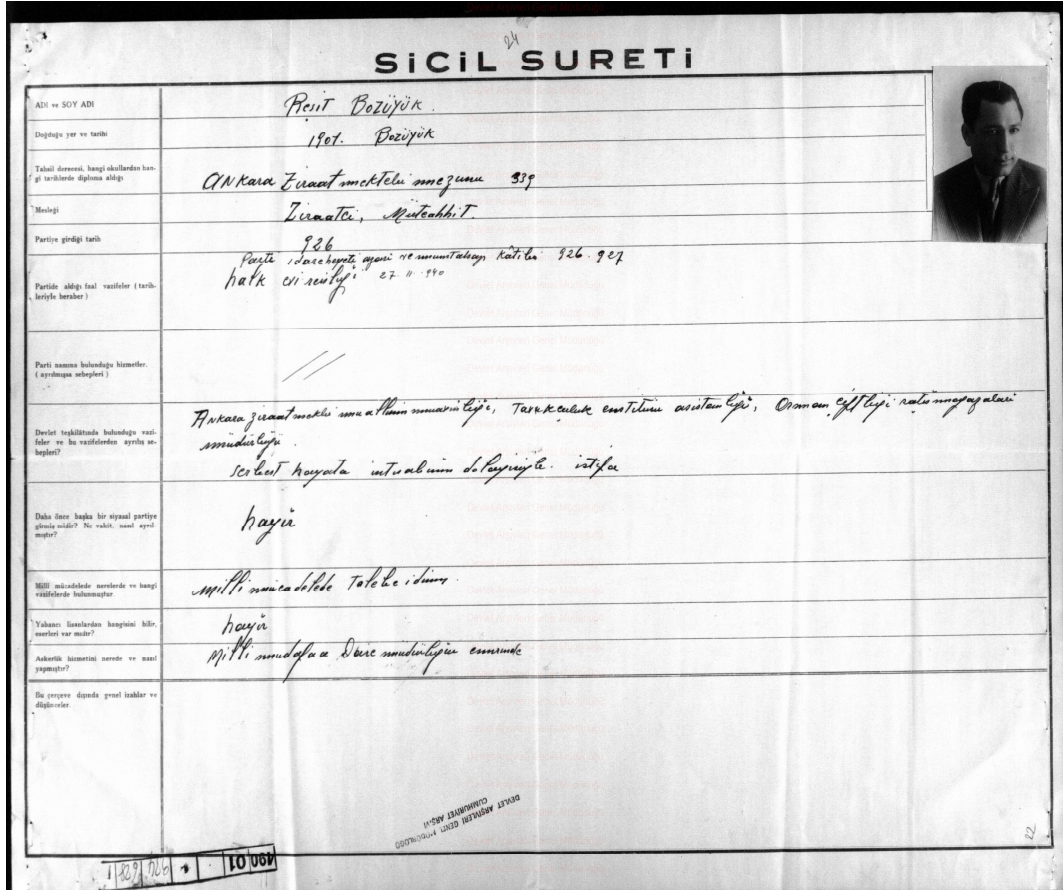 24
SİCİL SURETİ
ADI ve SOY ADI
Reşit Bozüyük.
Doğduğu yer ve tarihi
1907. Bozüyük
Tahsil derecesi, hangi okullardan han-
gi tarihlerde diploma aldığı
Ankara Ziraat mektebi mezunu 339
Mesleği
Ziraatci, Müteahhit.
Partiye girdiği tarih
926
Partide aldığı faal vazifeler (tarih-
leriyle beraber)
Parti idare heyeti azası ve muntahap Kâtibi 926-927
halk evi reisliği 27-11-940
Parti namına bulunduğu hizmetler.
(ayrılmışsa sebepleri)
//
Devlet teşkilâtında bulunduğu vazi-
feler ve bu vazifelerden ayrılış se-
bepleri?
Ankara ziraat mektebi muallim muavinliği, Tavukculuk enstitüsü asistanlığı, Orman çiftliği satış mağazaları
müdürlüğü
serbest hayata intisabım dolayısiyle. istifa
Daha önce başka bir siyasal partiye
girmiş midir? Ne vakit, nasıl ayrıl-
mıştır?
hayır
Millî mücadelede nerelerde ve hangi
vazifelerde bulunmuştur
Milli mücadelede Talebe idim.
Yabancı lisanlardan hangisini bilir,
eserleri var mıdır?
hayır
Askerlik hizmetini nerede ve nasıl
yapmıştır?
Milli müdafaa Daire müdürlüğü emrinde
Bu çerçeve dışında genel izahlar ve
düşünceler.
DEVLET ARŞİVLERİ GENEL MÜDÜRLÜĞÜ
CUMHURİYET ARŞİVİ
22
490 01